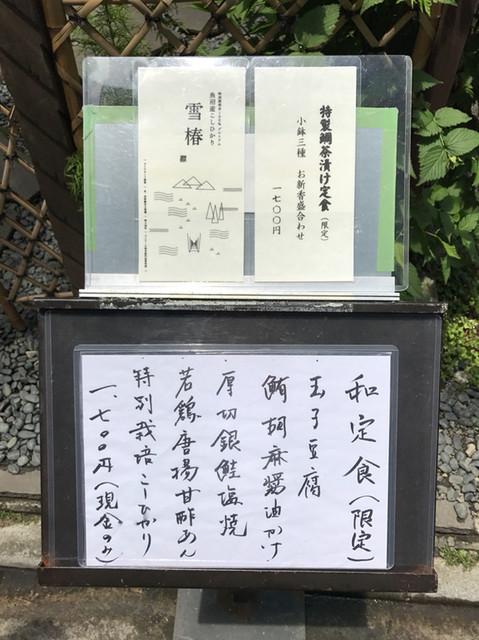 特製鯛茶漬け定食(限定)
小鉢三種 お新香盛合わせ
一七〇〇円
魚沼産こしひかり
雪椿
和定食(限定)
玉子豆腐
鮪胡麻醤油かけ
・厚切銀鮭塩焼
若鶏唐揚甘酢あん
特別栽培こしひかり
一、七〇〇円(現金のみ)